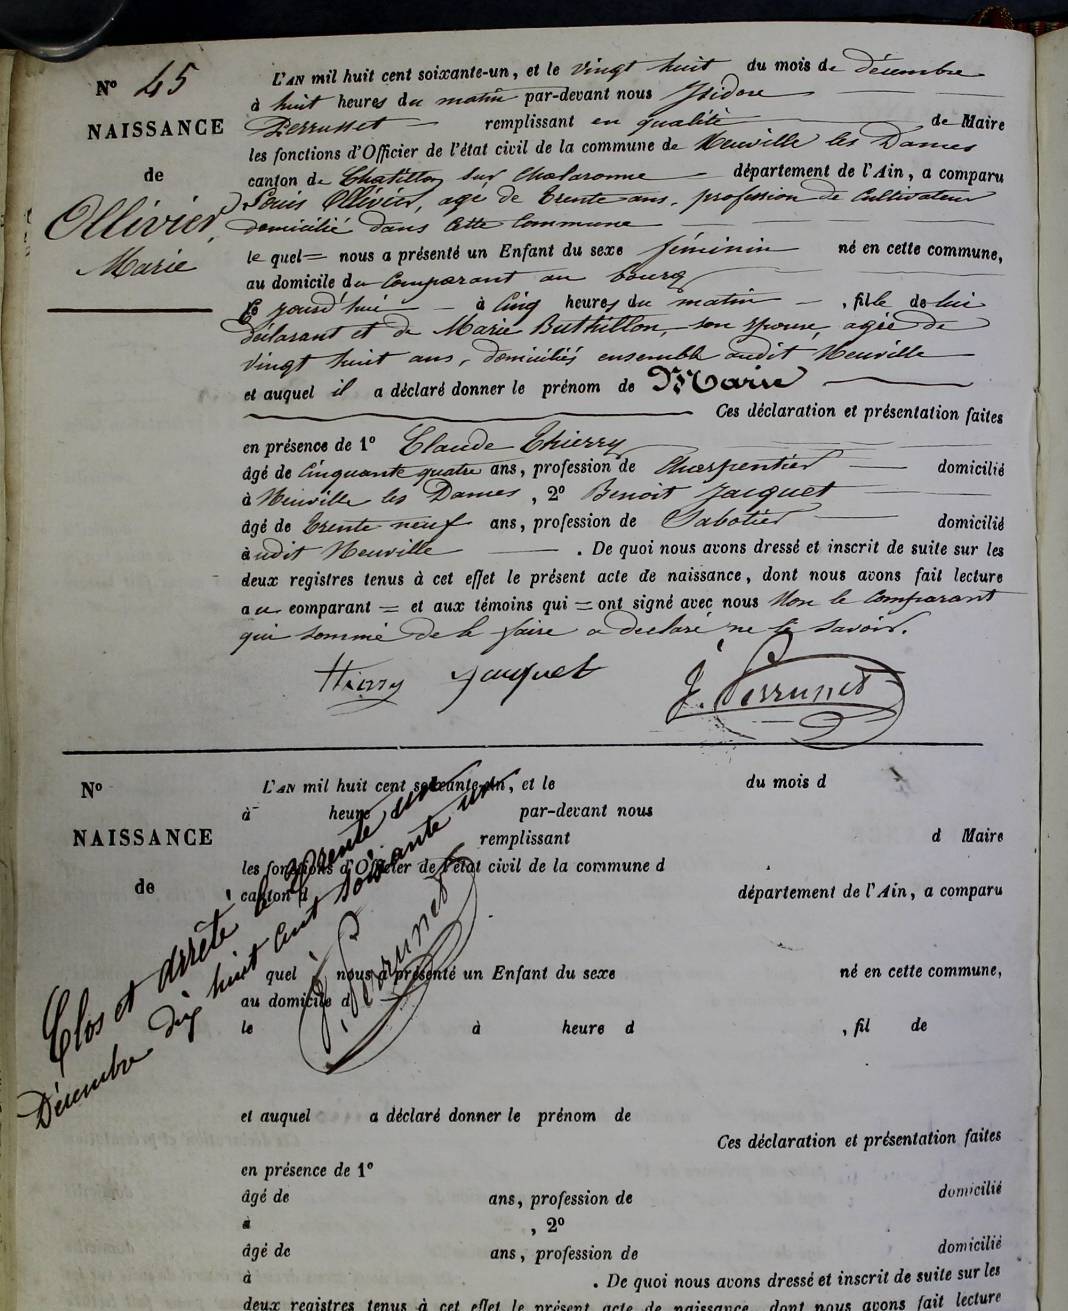 N° 45
NAISSANCE
de
Ollivier,
Marie
L'AN mil huit cent soixante-un, et le vingt huit du mois de décembre
à huit heures du matin par-devant nous Isidore
Perrusset remplissant en qualité de Maire
les fonctions d'Officier de l'état civil de la commune de Neuville les Dames
canton de Chatillon sur Chalaronne département de l'Ain, a comparu
Louis Ollivier, agé de trente ans, profession de Cultivateur
domicilié dans cette commune
le quel = nous a présenté un Enfant du sexe féminin né en cette commune,
au domicile du Comparant au bourg
ce jourd'hui à Cinq heures du matin , fille de lui
déclarant et de Marie Buthillon, son épouse, agée de
vingt huit ans, domiciliés ensemble audit Neuville
et auquel il a déclaré donner le prénom de Marie
Ces déclaration et présentation faites
en présence de 1° Claude Thierry
âgé de Cinquante quatre ans, profession de Charpentier domicilié
à Neuville les Dames , 2° Benoit Jacquet
âgé de trente neuf ans, profession de Sabotier domicilié
audit Neuville . De quoi nous avons dressé et inscrit de suite sur les
deux registres tenus à cet effet le présent acte de naissance, dont nous avons fait lecture
au comparant = et aux témoins qui = ont signé avec nous Non le Comparant
qui sommé de le faire a declaré ne le savoir.
Thierry Jacquet J. Perrusset
N°
NAISSANCE
de
L'AN mil huit cent soixante-un, et le du mois d
à heure par-devant nous
remplissant d Maire
les fonctions d'Officier de l'état civil de la commune d
canton d département de l'Ain, a comparu
quel nous a présenté un Enfant du sexe né en cette commune,
au domicile d
le à heure d , fil de
et auquel a déclaré donner le prénom de
Ces déclaration et présentation faites
en présence de 1°
âgé de ans, profession de domicilié
à , 2°
âgé de ans, profession de domicilié
à . De quoi nous avons dressé et inscrit de suite sur les
deux registres tenus à cet effet le présent acte de naissance, dont nous avons fait lecture
Clos et arrêté le trente un
Décembre dix huit cent soixante un
J. Perrusset